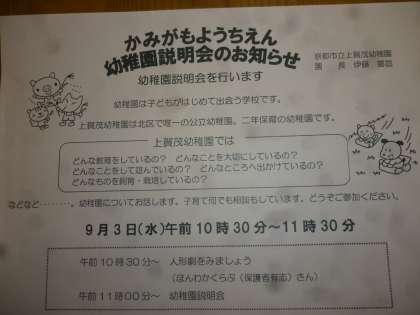 かみがもようちえん
幼稚園説明会のお知らせ
京都市立上賀茂幼稚園
園 長 伊藤
幼稚園説明会を行います
幼稚園は子どもがはじめて出会う学校です。
上賀茂幼稚園は北区で唯一の公立幼稚園、二年保育の幼稚園です。
上賀茂幼稚園では
どんな教育をしているの? どんなことを大切にしているの?
どんなことをして遊んでいるの? どんなところへ出かけているの?
どんなものを飼育・栽培しているの?
などなど………。幼稚園についてお話します。子育て何でも相談もしています。どうぞご参加ください。
9月3日(水)午前10時30分~11時30分
午前10時30分~ 人形劇をみましょう
(ほんわかくらぶ(保護者有志)さん)
午前11時00分~ 幼稚園説明会